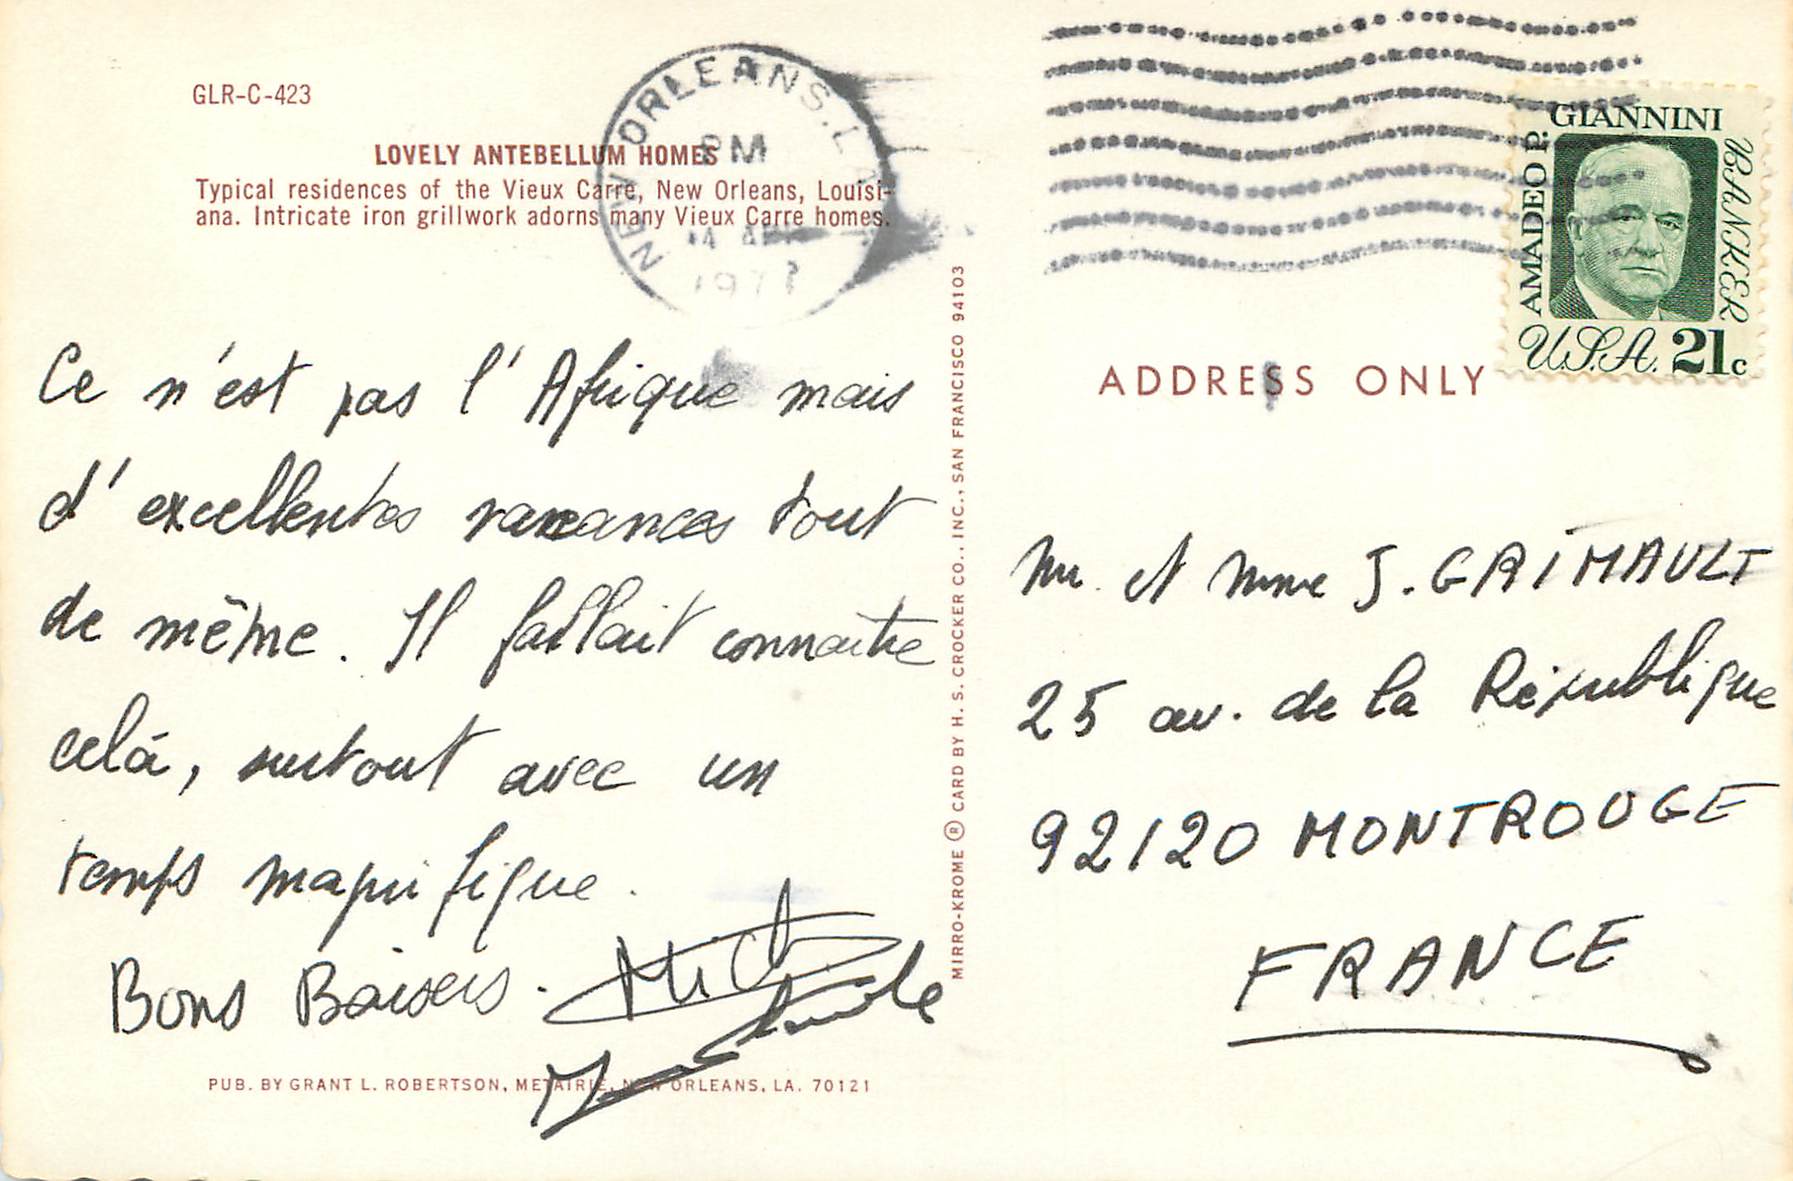 GLR-C-423
LOVELY ANTEBELLUM HOMES
Typical residences of the Vieux Carre, New Orleans, Louisi-
ana. Intricate iron grillwork adorns many Vieux Carre homes.
NEW ORLEANS, LA
PM
197
Ce n'est pas l'Afrique mais
d'excellentes vacances tout
de même. Il fallait connaitre
celà, surtout avec un
temps magnifique.
Bons Baisers.
PUB. BY GRANT L. ROBERTSON, METAIRIE, NEW ORLEANS, LA. 70121
MIRRO-KROME ® CARD BY H. S. CROCKER CO., INC., SAN FRANCISCO 94103
AMADEO P. GIANNINI BANKER
U.S.A. 21c
ADDRESS ONLY
Mr. et Mme J. GRIMAULT
25 av. de la République
92120 MONTROUGE
FRANCE